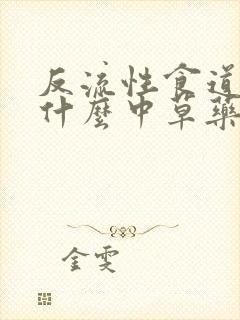 反流性食道
什麼中草藥
金雯